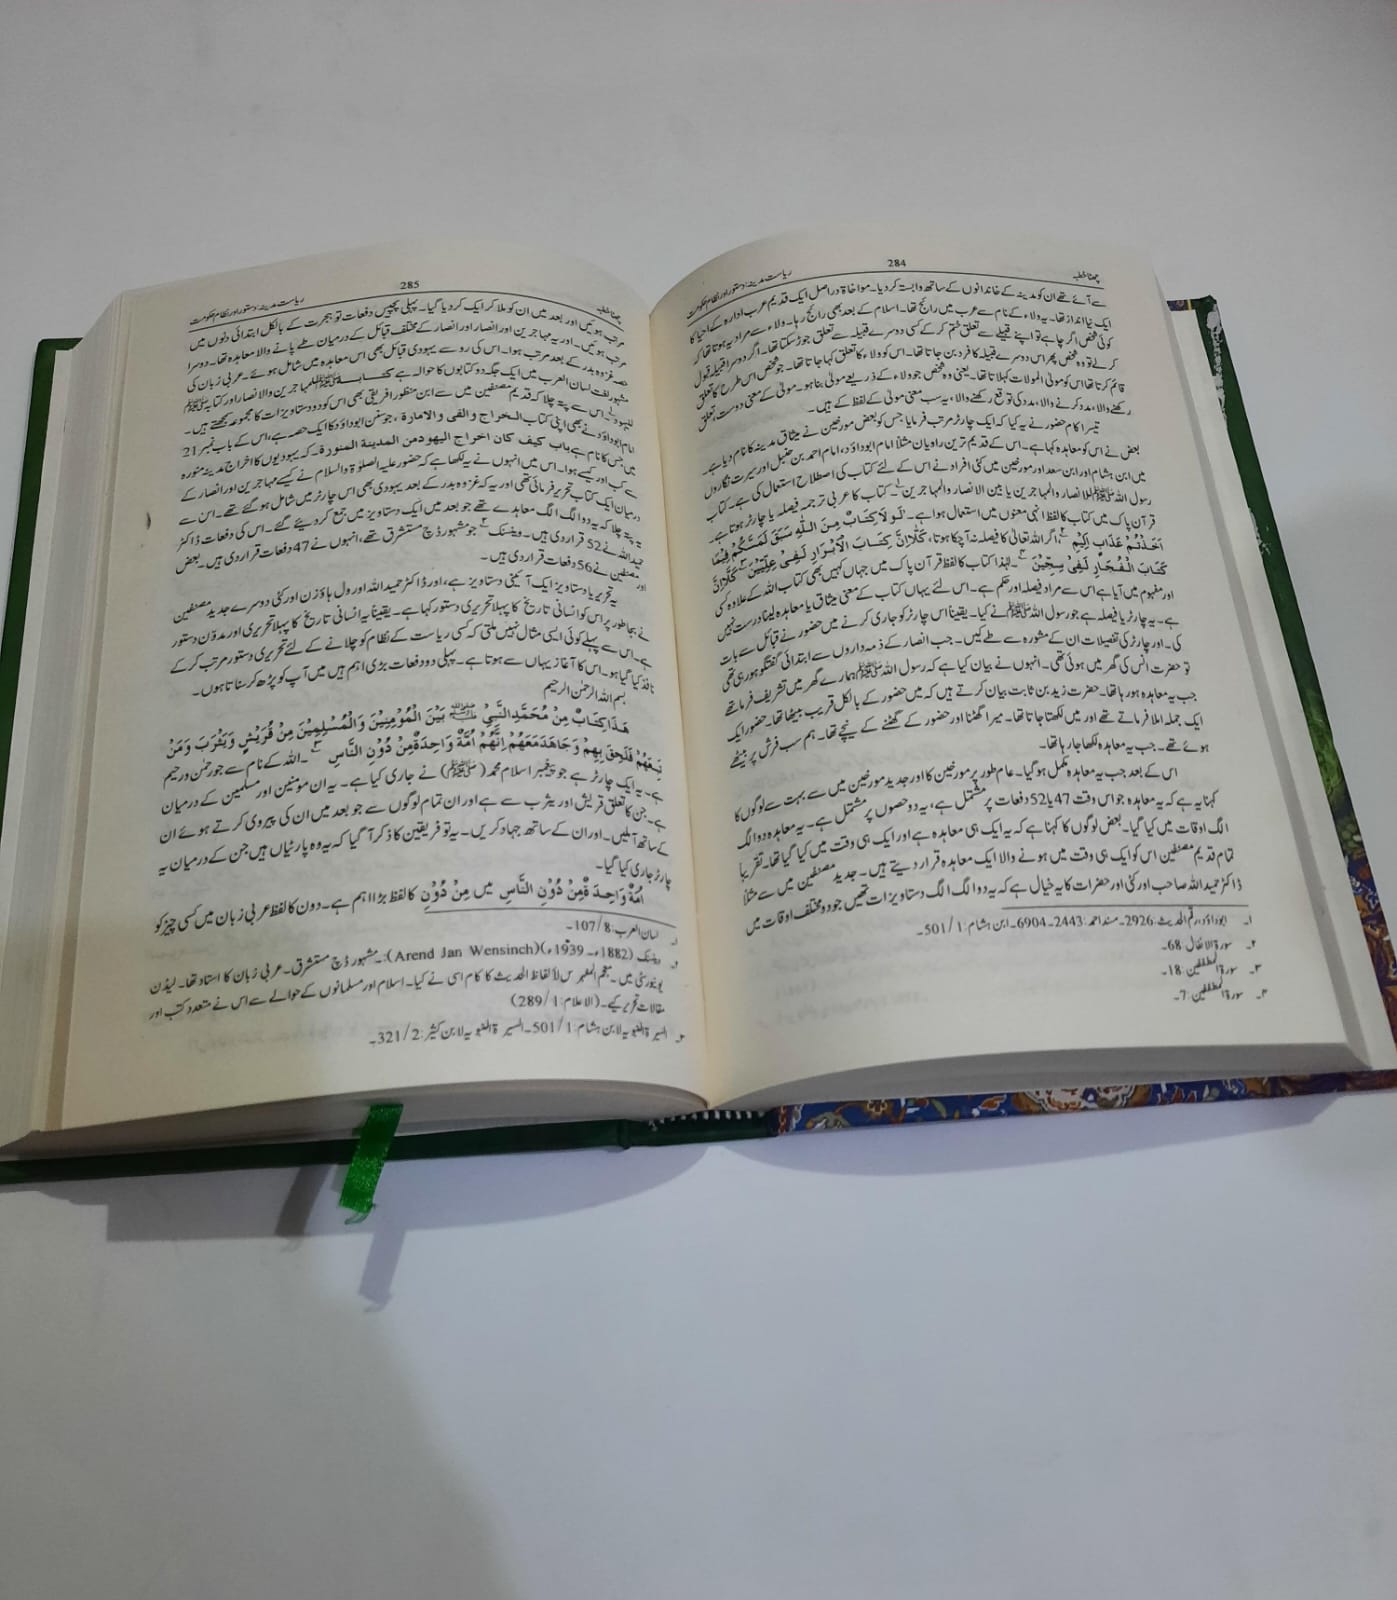 چھٹا خطبہ 284 ریاست مدینہ: دستور اور نظام حکومت
سے آئے تھے ان کو مدینہ کے خاندانوں کے ساتھ وابستہ کر دیا۔ مواخاۃ دراصل ایک قدیم عرب ادارہ کے احیا کا
ایک نیا انداز تھا۔ یہ ولاء کے نام سے عرب میں رائج تھا۔ اسلام کے بعد بھی رائج رہا۔ ولاء سے مراد یہ ہوتا تھا کہ
کوئی شخص اگر چاہے تو اپنے قبیلے سے تعلق ختم کر کے کسی دوسرے قبیلہ سے تعلق جوڑ سکتا تھا۔ اگر دوسرا قبیلہ قبول
کر لے تو وہ شخص پھر اس دوسرے قبیلہ کا فرد بن جاتا تھا۔ اس کو ولاء کا تعلق کہا جاتا تھا۔ جو شخص اس طرح کا تعلق
قائم کرتا تھا اس کو مولیٰ الموالات کہلاتا تھا۔ یعنی وہ شخص جو ولاء کے ذریعے مولیٰ بنا ہو۔ مولیٰ کے معنی دوست، تعلق
رکھنے والا، مدد کرنے والا، مدد کی توقع رکھنے والا، یہ سب معنی مولیٰ کے لفظ کے ہیں۔
تیسرا کام حضور نے یہ کیا کہ ایک چارٹر مرتب فرمایا جس کو بعض مورخین نے میثاق مدینہ کا نام دیا ہے۔
بعض نے اس کو معاہدہ کہا ہے۔ اس کے قدیم ترین راویان مثلاً امام ابوداؤد، امام احمد بن حنبل اور سیرت نگاروں
میں ابن ہشام اور ابن سعد اور مورخین میں کئی افراد نے اس کے لئے کتاب کی اصطلاح استعمال کی ہے۔ کتاب
رسول اللہ ﷺ للانصار والمہاجرین یا بین الانصار والمہاجرین۱۔ کتاب کا عربی ترجمہ فیصلہ یا چارٹر ہوتا ہے۔
قرآن پاک میں کتاب کا لفظ انہی معنوں میں استعمال ہوا ہے۔ لَوْ لَا كِتَابٌ مِّنَ اللّٰهِ سَبَقَ لَمَسَّكُمْ فِيْمَا
اَخَذْتُمْ عَذَابٌ اَلِيْمٌ۲ اگر اللہ تعالیٰ کا فیصلہ نہ آچکا ہوتا، كَلَّا اِنَّ كِتَابَ الْاَبْرَارِ لَفِيْ عِلِّيِّيْنَ۳ كَلَّا اِنَّ
كِتَابَ الْفُجَّارِ لَفِيْ سِجِّيْنَ۴۔ لہٰذا کتاب کا لفظ قرآن پاک میں جہاں کہیں بھی کتاب اللہ کے علاوہ کی
اور مفہوم میں آیا ہے اس سے مراد فیصلہ اور حکم ہے۔ اس لئے یہاں کتاب کے معنی میثاق یا معاہدہ لینا درست نہیں
ہے۔ یہ چارٹر یا فیصلہ ہے جو رسول اللہ ﷺ نے کیا۔ یقیناً اس چارٹر کو جاری کرنے میں حضور نے قبائل سے بات
کی۔ اور چارٹر کی تفصیلات ان کے مشورہ سے طے کیں۔ جب انصار کے ذمہ داروں سے ابتدائی گفتگو ہو رہی تھی
تو حضرت انسؓ کی گھر میں ہوئی تھی۔ انہوں نے بیان کیا ہے کہ رسول اللہ ﷺ ہمارے گھر میں تشریف فرما تھے
جب یہ معاہدہ ہو رہا تھا۔ حضرت زید بن ثابت بیان کرتے ہیں کہ میں حضور کے بالکل قریب بیٹھا تھا۔ حضور ایک
ایک جملہ املا فرماتے تھے اور میں لکھتا جاتا تھا۔ میرا گھٹنا اور حضور کے گھٹنے کے نیچے تھا۔ ہم سب فرش پر بیٹھے
ہوئے تھے۔ جب یہ معاہدہ لکھا جا رہا تھا۔
اس کے بعد جب یہ معاہدہ مکمل ہو گیا۔ عام طور پر مورخین کا اور جدید مورخین میں سے بہت سے لوگوں کا
کہنا یہ ہے کہ یہ معاہدہ جو اس وقت 47 یا 52 دفعات پر مشتمل ہے، یہ دو حصوں پر مشتمل ہے۔ یہ معاہدہ دو الگ
الگ اوقات میں کیا گیا۔ بعض لوگوں کا کہنا ہے کہ یہ ایک ہی معاہدہ ہے اور ایک ہی وقت میں کیا گیا تھا۔ تقریباً
تمام قدیم مصنفین اس کو ایک ہی وقت میں ہونے والا ایک معاہدہ قرار دیتے ہیں۔ جدید مصنفین میں سے مثلاً
ڈاکٹر حمید اللہ صاحب اور کئی اور حضرات کا یہ خیال ہے کہ یہ دو الگ الگ دستاویزات تھیں جو دو مختلف اوقات میں
۱۔ ابوداؤد، رقم الحدیث: 2926۔ مسند احمد: 2443۔ 6904۔ ابن ہشام: 501/1۔
۲۔ سورۃ الانفال: 68۔
۳۔ سورۃ المطففین: 18۔
۴۔ سورۃ المطففین: 7۔
چھٹا خطبہ 285 ریاست مدینہ: دستور اور نظام حکومت
مرتب ہوئیں اور بعد میں ان کو ملا کر ایک کر دیا گیا۔ پہلی پچیس دفعات تو ہجرت کے بالکل ابتدائی دنوں میں
مرتب ہوئیں۔ اور یہ مہاجرین اور انصار اور انصار کے مختلف قبائل کے درمیان طے پانے والا معاہدہ تھا۔ دوسرا
حصہ غزوہ بدر کے بعد مرتب ہوا۔ اس کی رو سے یہودی قبائل بھی اس معاہدہ میں شامل ہوئے۔ عربی زبان کی
مشہور لغت لسان العرب میں ایک جگہ دو کتابوں کا حوالہ ہے کتابہ ﷺ للمہاجرین والانصار اور کتابہ ﷺ
للیہود۱۔ اس سے پتہ چلا کہ قدیم مصنفین میں سے ابن منظور افریقی بھی اس کو دو دستاویزات کا مجموعہ سمجھتے ہیں۔
امام ابوداؤد نے بھی اپنی کتاب الخراج والفی والامارۃ، جو سنن ابوداؤد کا ایک حصہ ہے، اس کے باب نمبر 21
میں جس کا نام ہے باب کیف کان اخراج الیھود من المدینة المنورة۔ کہ یہودیوں کا اخراج مدینہ منورہ
سے کب اور کیسے ہوا۔ اس میں انہوں نے یہ لکھا ہے کہ حضور علیہ الصلوٰۃ والسلام نے کیسے مہاجرین اور انصار کے
درمیان ایک کتاب تحریر فرمائی تھی اور یہ کہ غزوہ بدر کے بعد یہودی بھی اس چارٹر میں شامل ہو گئے تھے۔ اس سے
یہ پتہ چلا کہ یہ دو الگ الگ معاہدے تھے جو بعد میں ایک دستاویز میں جمع کر دیئے گئے۔ اس کی دفعات ڈاکٹر
حمید اللہ نے 52 قرار دی ہیں۔ وینسنک۲ جو مشہور ڈچ مستشرق تھے، انہوں نے 47 دفعات قرار دی ہیں۔ بعض
اور مصنفین نے 56 دفعات قرار دی ہیں۔
یہ تحریر یا دستاویز ایک آئینی دستاویز ہے، اور ڈاکٹر حمید اللہ اور ول ہاؤزن اور کئی دوسرے جدید مصنفین
نے بجا طور پر اس کو انسانی تاریخ کا پہلا تحریری دستور کہا ہے۔ یقیناً یہ انسانی تاریخ کا پہلا تحریری اور مدوّن دستور
ہے۔ اس سے پہلے کوئی ایسی مثال نہیں ملتی کہ کسی ریاست کے نظام کو چلانے کے لئے تحریری دستور مرتب کر کے
نافذ کیا گیا ہو۔ اس کا آغاز یہاں سے ہوتا ہے۔ پہلی دو دفعات بڑی اہم ہیں میں آپ کو پڑھ کر سناتا ہوں۔
بسم اللہ الرحمٰن الرحیم
هٰذَا كِتَابٌ مِنْ مُحَمَّدِ النَّبِيِّ ﷺ بَيْنَ الْمُؤْمِنِيْنَ وَالْمُسْلِمِيْنَ مِنْ قُرَيْشٍ وَيَثْرَبَ وَمَنْ
تَبِعَهُمْ فَلَحِقَ بِهِمْ وَجَاهَدَ مَعَهُمْ اِنَّهُمْ اُمَّةٌ وَاحِدَةٌ مِنْ دُوْنِ النَّاسِ۳۔ اللہ کے نام سے جو رحمٰن و رحیم
ہے۔ یہ ایک چارٹر ہے جو پیغمبر اسلام محمد (ﷺ) نے جاری کیا ہے۔ یہ ان مومنین اور مسلمین کے درمیان
ہے۔ جن کا تعلق قریش اور یثرب سے ہے اور ان تمام لوگوں سے جو بعد میں ان کی پیروی کرتے ہوئے ان
کے ساتھ آملیں۔ اور ان کے ساتھ جہاد کریں۔ یہ تو فریقین کا ذکر آ گیا کہ یہ وہ پارٹیاں ہیں جن کے درمیان یہ
چارٹر جاری کیا گیا۔
اُمَّةٌ وَاحِدَةٌ مِنْ دُوْنِ النَّاسِ میں مِنْ دُوْنِ کا لفظ بڑا اہم ہے۔ دون کا لفظ عربی زبان میں کسی چیز کو
۱۔ لسان العرب: 107/8۔
۲۔ وینسنک (1882ء۔ 1939ء) (Arend Jan Wensinch): مشہور ڈچ مستشرق۔ عربی زبان کا استاد تھا۔ لیڈن
یونیورسٹی میں۔ معجم المفہرس لألفاظ الحدیث کا کام اسی نے کیا۔ اسلام اور مسلمانوں کے حوالے سے اس نے متعدد کتب اور
مقالات تحریر کیے۔ (الاعلام: 289/1)
۳۔ السیرۃ النبویہ لابن ہشام: 501/1۔ السیرۃ النبویہ لابن کثیر: 321/2۔